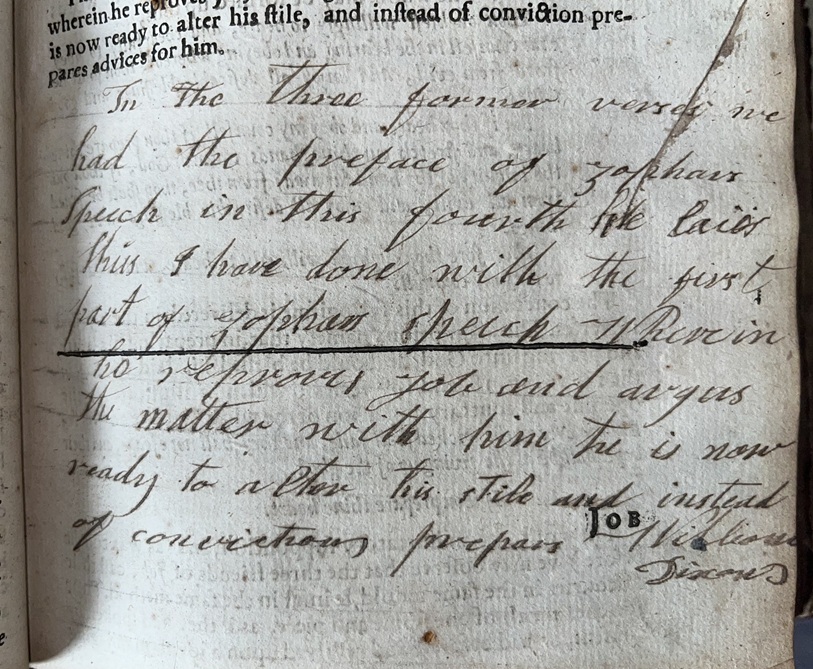 wherein he reproves
is now ready to alter his ſtile, and inſtead of conviction pre-
pares advices for him.
In The three former verses we
had the preface of zophars
Speech in this fourth he laies
thus I have done with the first
part of zophars speech Wherein
he reproves Job and argus
the matter with him he is now
ready to alter his stile and instead
of convictions prepars
JOB
William
Dixons